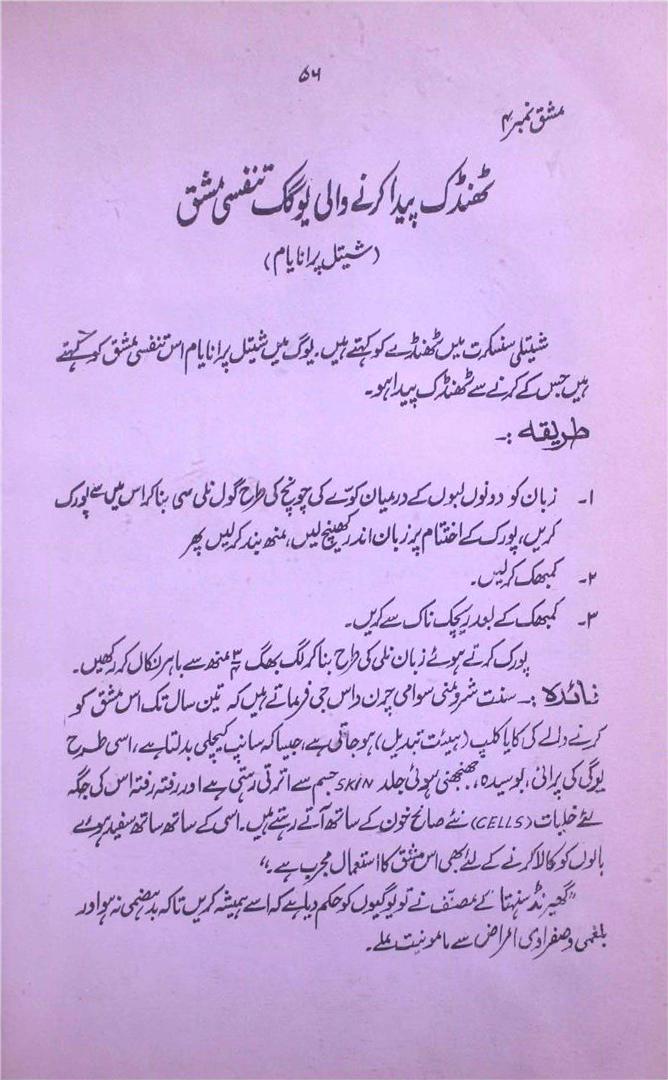 ۵۶
مشق نمبر ۴
ٹھنڈک پیدا کرنے والی یوگک تنفسی مشق
(شیتل پرانایام)
شیتلی سنسکرت میں ٹھنڈے کو کہتے ہیں۔ یوگ میں شیتل پرانایام اس تنفسی مشق کو کہتے
ہیں جس کے کرنے سے ٹھنڈک پیدا ہو۔
طریقہ :۔
۱۔ زبان کو دونوں لبوں کے درمیان کوّے کی چونچ کی طرح گول نلی سی بنا کر اس میں سے پورک
کریں، پورک کے اختتام پر زبان اندر کھینچ لیں، منھ بند کرلیں پھر
۲۔ کمبھک کرلیں۔
۳۔ کمبھک کے بعد ریچک ناک سے کریں۔
پورک کرتے ہوئے زبان نلی کی طرح بنا کر لگ بھگ ۳/۴ منھ سے باہر نکال کر رکھیں۔
فائدہ :۔ سنت شرومنی سوامی چرن داس جی فرماتے ہیں کہ تین سال تک اس مشق کو
کرنے والے کی کایا کلپ (ہیئت تبدیل) ہوجاتی ہے، جیسا کہ سانپ کیچلی بدلتا ہے، اسی طرح
یوگی کی پرانی، بوسیدہ، جھنجھنی ہوئی جلد SKIN جسم سے اترتی رہتی ہے اور رفتہ رفتہ اس کی جگہ
نئے خلیات (CELLS) نئے صالح خون کے ساتھ آتے رہتے ہیں۔ اسی کے ساتھ ساتھ سفید ہوئے
بالوں کو کالا کرنے کے لئے بھی اس مشق کا استعمال مجرب ہے۔“
”گھیرنڈ سنہتا“ کے مصنّف نے تو یوگیوں کو حکم دیا ہے کہ اسے ہمیشہ کریں تاکہ بدہضمی نہ ہو اور
بلغمی و صفرادی امراض سے مامونیت ملے۔